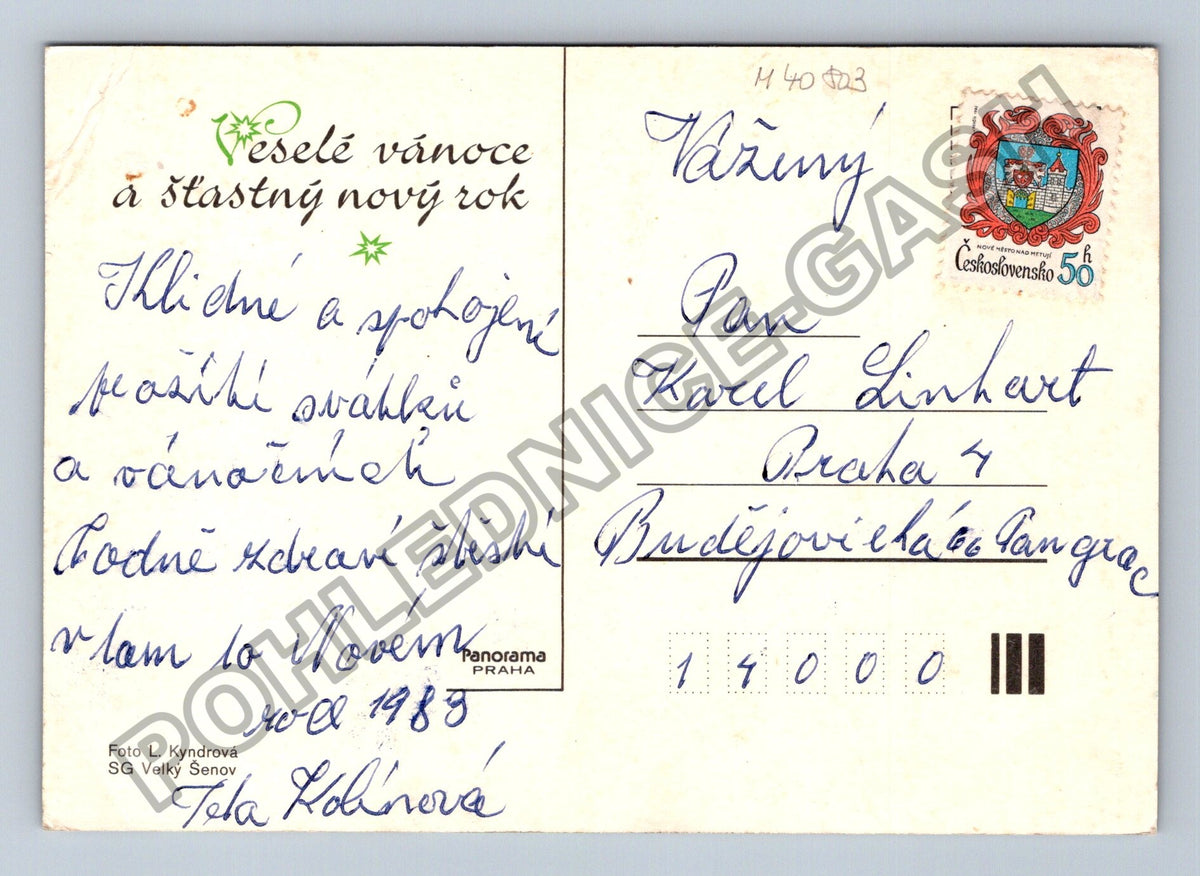 Veselé vánoce
a šťastný nový rok
Klidné a spokojené
prožití svátků
a vánočních
hodně zdraví štěstí
v tom to Novém
roce 1983
Teta Kolínová
Panorama
PRAHA
Foto L. Kyndrová
SG Velký Šenov
M 40 803
Vážený
Pan
Karel Linhart
Praha 4
Budějovická 66 Pangrac
14000
NOVÉ MĚSTO NAD METUJÍ
Československo 50 h
POHLEDNICE-GASH